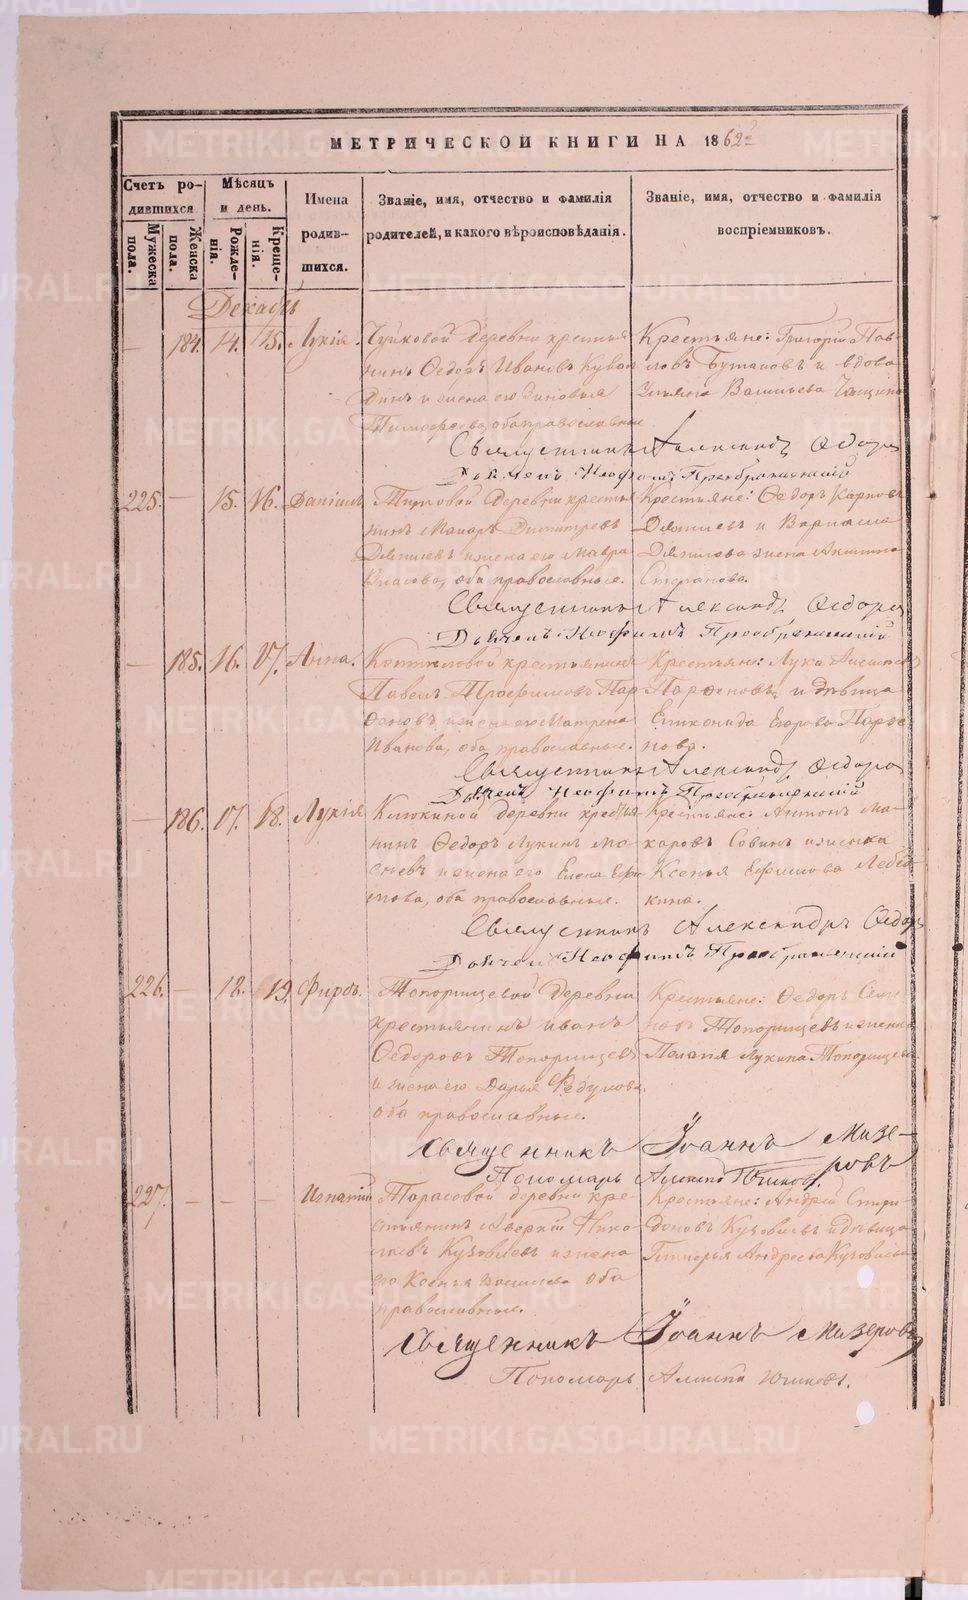 МЕТРИЧЕСКОЙ КНИГИ НА 1862
Счетъ ро-
дившихся.
Мужеска
пола.
Женска
пола.
Мѣсяцъ
и день.
Рожде-
нія.
Креще-
нія.
Имена
родив-
шихся.
Званіе, имя, отчество и фамилія
родителей, и какого вѣроисповѣданія.
Званіе, имя, отчество и фамилія
воспріемниковъ.
Декабрь
— 184. 14. 15. Лукія.
деревни крестья
нинъ Ѳедоръ Ивановъ
и жена его Зиновья
Тимофеева, оба православные
Крестьяне: Григорій Пав-
ловъ и вдова
Васильева
Священникъ Александръ Ѳедоров
Дьячекъ Неофитъ Преображенскій
225. — 15. 16. Даніилъ
деревни крестья
нинъ Макаръ Димитріевъ
и жена его Мавра
Власова, оба православные.
Крестьяне: Ѳедоръ Карповъ
и Варлама
жена Акилина
Степанова.
Священникъ Александръ Ѳедоров
Дьячекъ Неофитъ Преображенскій
— 185. 16. 17. Анна.
крестьянинъ
Павелъ Трофимовъ Пар
ѳеновъ и жена его Матрена
Иванова, оба православные.
Крестьяне: Лука
Парѳеновъ, и дѣвица
Егорова Парѳе
нова.
Священникъ Александръ Ѳедоров
Дьячекъ Неофитъ Преображенскій
— 186. 17. 18. Лукія
Клюкиной деревни крестья
нинъ Ѳедоръ Лукинъ Мо
сѣевъ и жена его Елена Ефи
мова, оба православные.
Крестьяне: Антонъ Ма-
каровъ и
Ксенья Ефимова Лебед
кина.
Священникъ Александръ Ѳедоров
Дьячекъ Неофитъ Преображенскій
226. — 18. 19. Фирсъ.
Топорищевой деревни
крестьянинъ Иванъ
Ѳедоровъ Топорищевъ
и жена его Дарья Ѳедулова
оба православные.
Крестьяне: Ѳедоръ Семе
новъ Топорищевъ и жена
Пелагія Лукина Топорищева
Священникъ Іоаннъ Мизе-
ровъ
Пономарь Алексѣй Юшковъ.
227. — — — Игнатій
Тарасовой деревни кре-
стьянинъ Аверкій Нико
лаевъ Кузовлевъ и жена
его Ксенья Васильева оба
православные.
Крестьяне: Андрей Спири-
доновъ Кузовлевъ и дѣвица
Гликерья Андреева Кузовлева
Священникъ Іоаннъ Мизеровъ
Пономарь Алексѣй Юшковъ.
METRIKI.GASO-URAL.RU